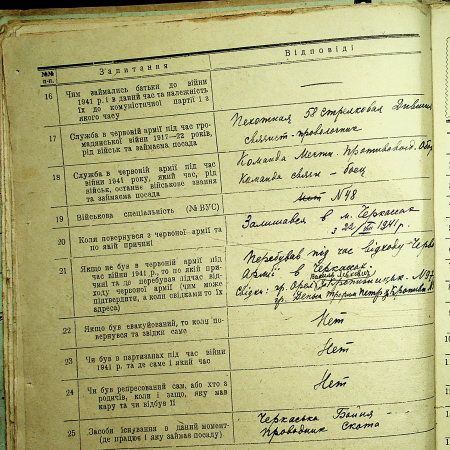 №№ п-п.
Запитання
Відповіді
16 Чим займались батьки до війни
1941 р. і в даний час та належність
їх до комуністичної партії і з
якого часу
17 Служба в червоній армії під час гро-
мадянської війни 1917—22 років,
рід військ та займаєма посада
Пехотная 58 стрілковая Дивизия
связист-проволочник
18 Служба в червоній армії під час
війни 1941 року, який час, рід
військ, останнє військове звання
та займаєма посада
Команда Противовозд. Обо
Команда связи - боец
19 Військова спеціальність (№ ВУС)
№ 48
20 Коли повернувся з червоної армії та
по якій причині
Залишався в м. Черкасах
з 22/VIII 1941 г.
21 Якщо не був в червоній армії під
час війни 1941 р., то по якій при-
чині та де перебував підчас від-
ходу червоної армії (чим може
підтвердити, а коли свідками то їх
адреса)
Перебував під час відходу Черво
Армії в Черкасах
Свідки: гр.
гр. Петро
22 Якщо був евакуйований, то коли по-
вернувся та звідки саме
Нет
23 Чи був в партизанах під час війни
1941 р. та де саме і який час
Нет
24 Чи був репресований сам, або хто з
родичів, коли і защо, яку мав
кару та чи відбув її
Нет
25 Засоби існування в даний момент-
(де працює і яку займає посаду)
Черкаська Бойня -
проводник Скота